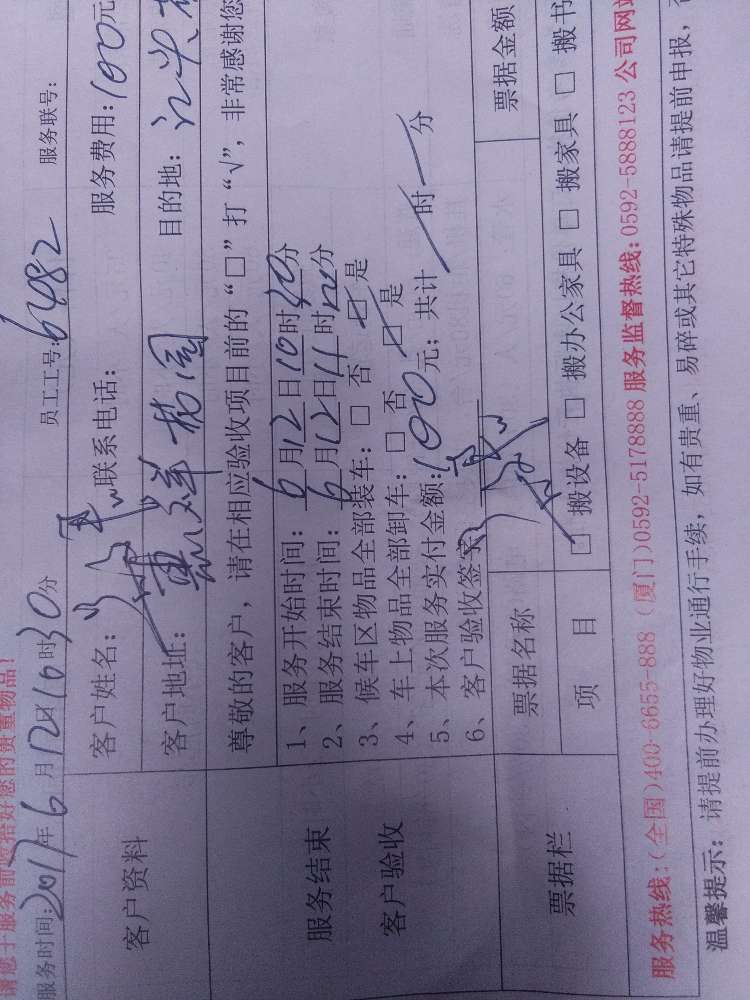 请您于服务前收拾好您的贵重物品！
服务时间：2017年6月12日10时30分 员工工号：6482 服务联号：
客户资料
客户姓名： 联系电话： 服务费用：100元
客户地址： 目的地：
尊敬的客户，请在相应验收项目前的“□”打“√”，非常感谢您
服务结束
客户验收
1、服务开始时间：6月12日10时30分
2、服务结束时间：6月12日11时分
3、候车区物品全部装车：□ 否 ☑ 是
4、车上物品全部卸车：□ 否 ☑ 是
5、本次服务实付金额：100元；共计 时 分
6、客户验收签字
票据栏
票据名称 票据金额
项 目 □ 搬设备 □ 搬办公家具 □ 搬家具 □ 搬书
服务热线：(全国)400-6655-888 (厦门)0592-5178888 服务监督热线：0592-5888123 公司网站
温馨提示：请提前办理好物业通行手续，如有贵重、易碎或其它特殊物品请提前申报，